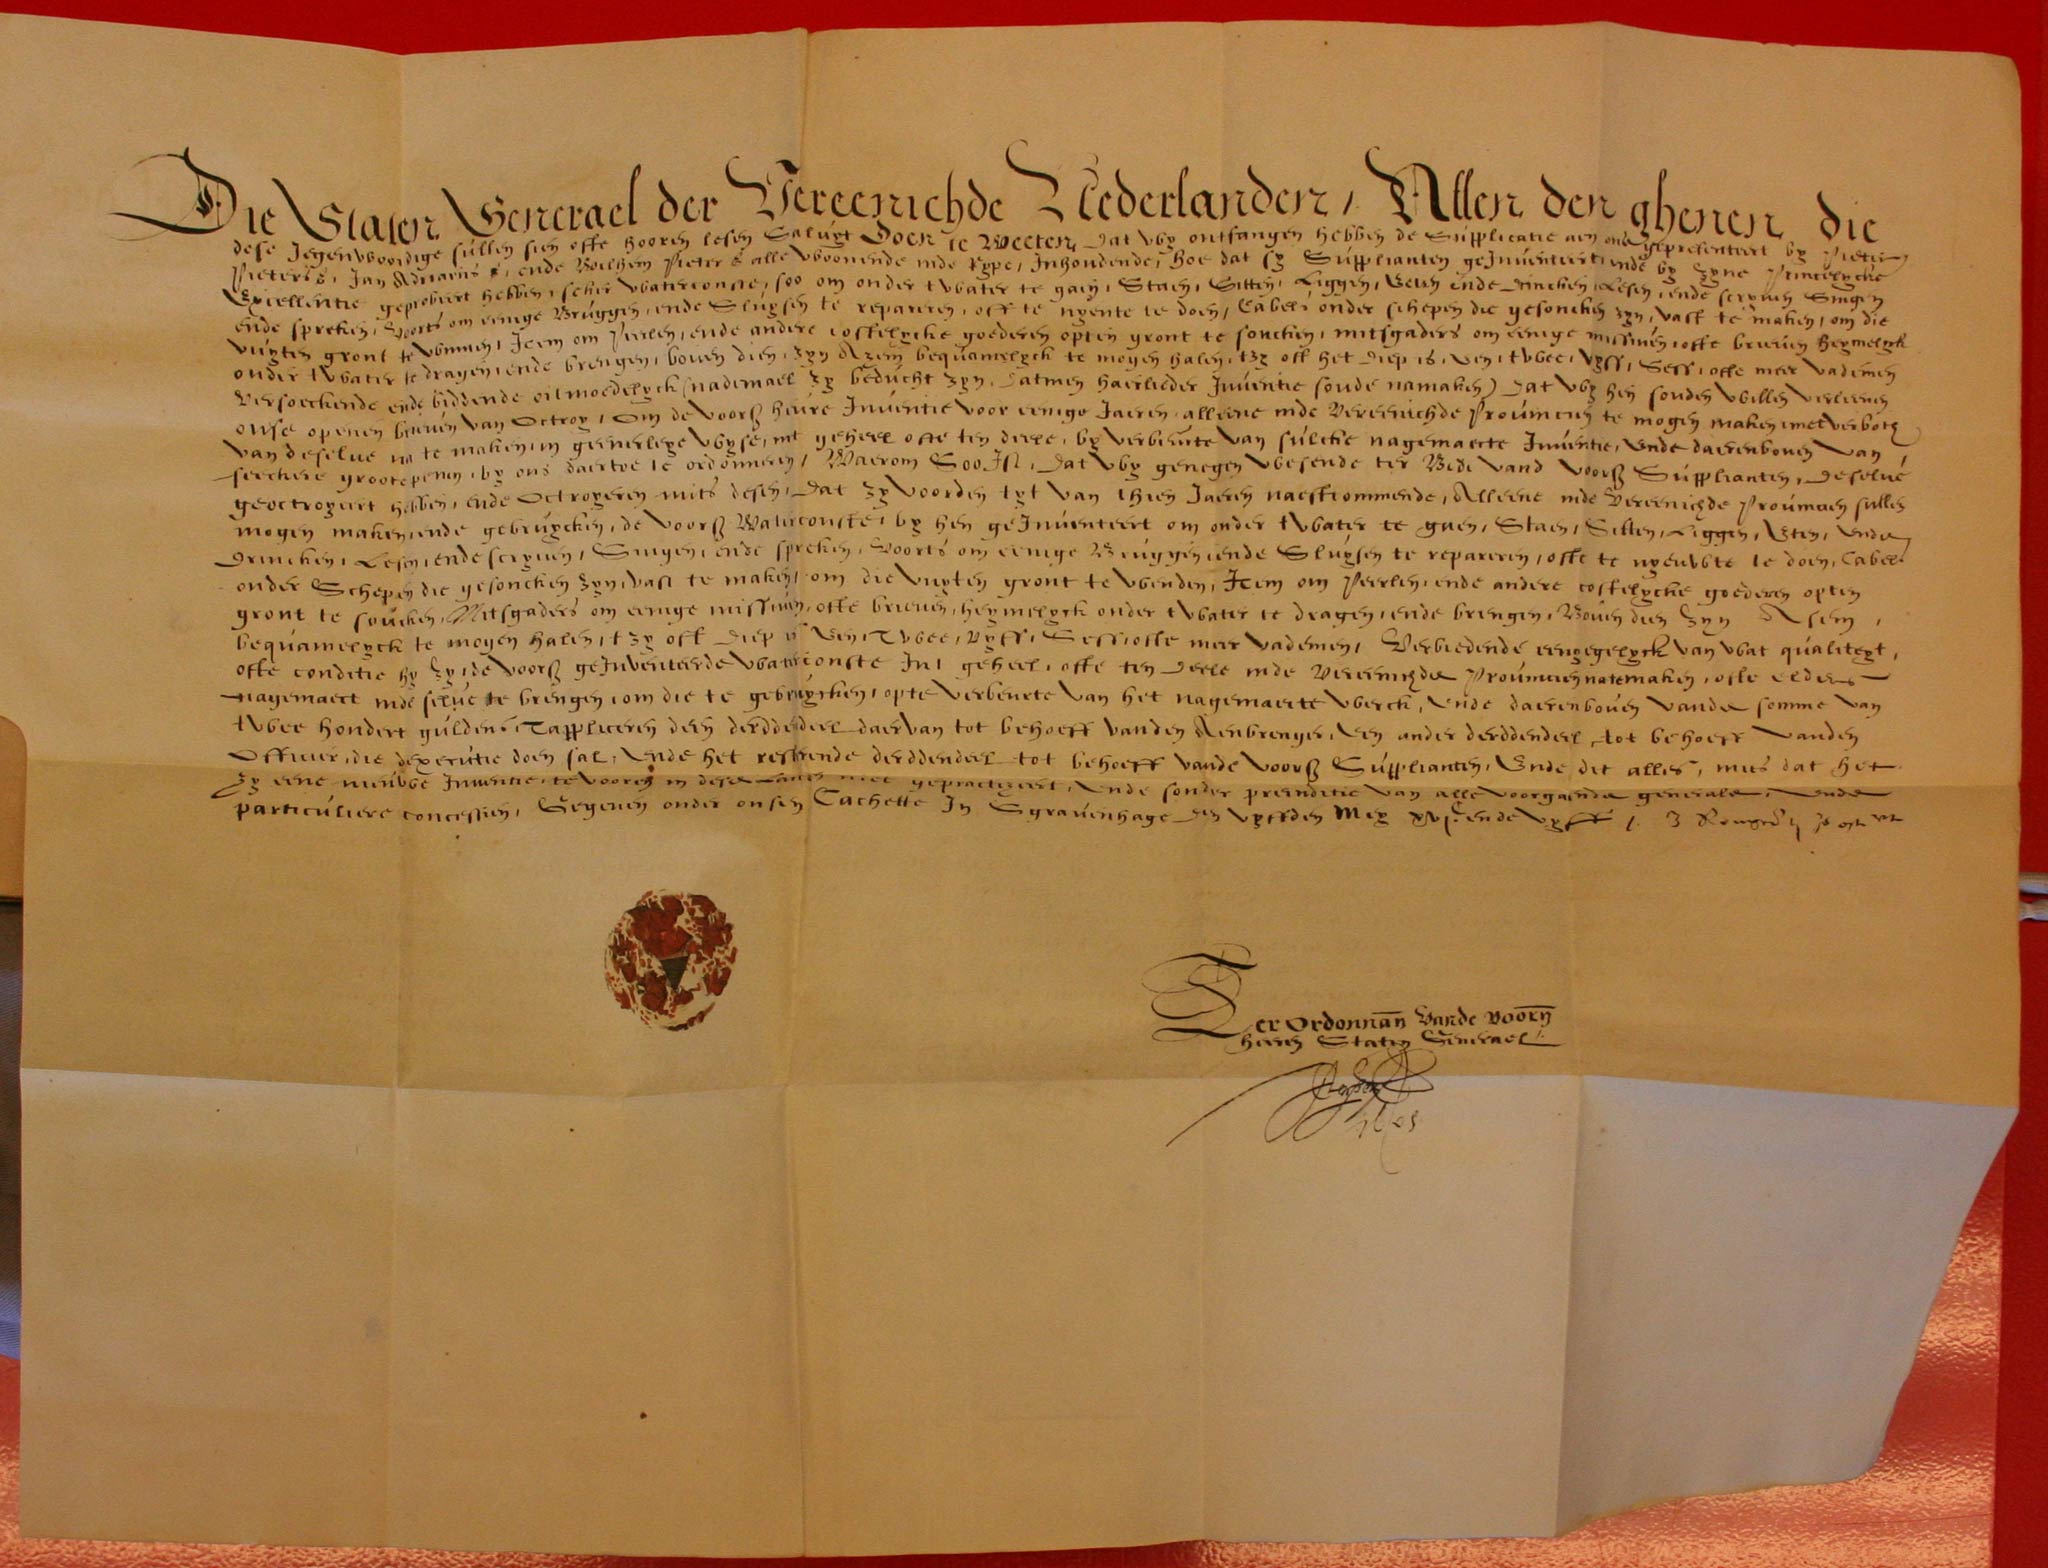 Die Staten Generael der Vereenichde Nederlanden, Allen den ghenen die
dese Jegenwoordige sullen sien offte hooren lesen Saluyt Doen te Weeten, Dat wy ontfangen hebben de Supplicatie aen ons gepresenteert by Pieter
Pieterss, Jan Adriaenss, ende Willem Pieterss alle woonende inde Rype, Inhoudende, hoe dat sy Supplianten geInventeert, ende by zyne Princelycke
Excellentie geprobeert hebben, seker waterconste, soo om onder twater te gaen, Staen, Sitten, Liggen, Eeten ende drincken, Lesen, ende scryven Singen
ende spreken, Voorts om eenige Bruggen, ende Sluysen te repareren, off te nyeute te doen, Cabels onder schepen die gesoncken zyn, vast te maken, om die
vuyten gront te winnen, Item om Peerlen, ende andere costelycke goederen opten gront te soucken, mitsgaders om eenige missiven, offte brieven heymelyck
onder twater te dragen, ende brengen, boven dien, zyn Azem bequamelyck te mogen halen, tzy off het diep is, een, twee, vyff, Sess, offte meer vademen
Versoeckende ende biddende oitmoedelyck (nademael zy beducht zyn, datmen haerlieder Inventie soude namaken) Dat wy hen souden willen verleenen
onse openen brieven van Octroy, Om de voorß heure Inventie voor eenige Jaeren alleene inde Vereenichde Provincien te mogen maken, met verboth
van deselve na te maken, in geenerleye wyse, int geheel ofte ten deele, by verbeurte van sulcke nagemaecte Inventie, Ende daerenboven van
seeckere groote penen, by ons daertoe te ordonneren, Waerom Soo Ist, Dat wy genegen wesende ter Bede vand voorß Supplianten, deselve
geoctroyeert hebben, ende Octroyeren mits desen, Dat zy voorden tyt van thien Jaeren naestcommende, Alleene inde Vereenichde Provincien sullen
mogen maken, ende gebruycken, de voorß Waterconste, by hen geInventeert om onder twater te gaen, Staen, Sitten, Liggen, Eten, ende
drincken, Lesen, ende scryven, Singen, ende spreken, Voorts om eenige Bruggen, ende Sluysen te repareren, offte te nyeuwte te doen, Cabels
onder Schepen die gesoncken zyn, vast te maken, om die vuyten gront te winden, Item om Peerlen, ende andere costelycke goederen opten
gront te soucken, Mitsgaders om eenige missiven, offte brieven, heymelyck onder twater te dragen, ende brengen, Boven dien zyn Asem,
bequamelyck te mogen halen, tzy off diep is Een, Twee, Vyff, Sess, offte meer vademen, Verbiedende eenyegelyck van wat qualiteyt,
offte conditie hy zy, de voorß geInventeerde waterconste Int geheel, offte ten deele inde Vereenichde Provincien natemaken, offte elders
nagemaect inde selve te brengen, om die te gebruycken, opte verbeurte van het nagemaecte werck, Ende daerenboven vande somme van
twee hondert guldens, Tappliceren deen derdendeel daervan tot behoeff vanden Aenbrenger, Een ander derddendeel tot behoeff vanden
Officier, die dexecutie doen sal, Ende het resterende derddendeel tot behoeff vande voorß Supplianten, Ende dit alles, mits dat het
zy eene nieuwe Inventie, te vooren in dese Landen niet gepractizeert, Ende sonder preinditie van alle voorgaende generale, ende
particuliere concessien, Gegeven onder onsen Cachette In Sgravenhage den vyffden Mey xvjC ende vyff
Ter Ordonnan Vande voorn
heeren Staten Generael